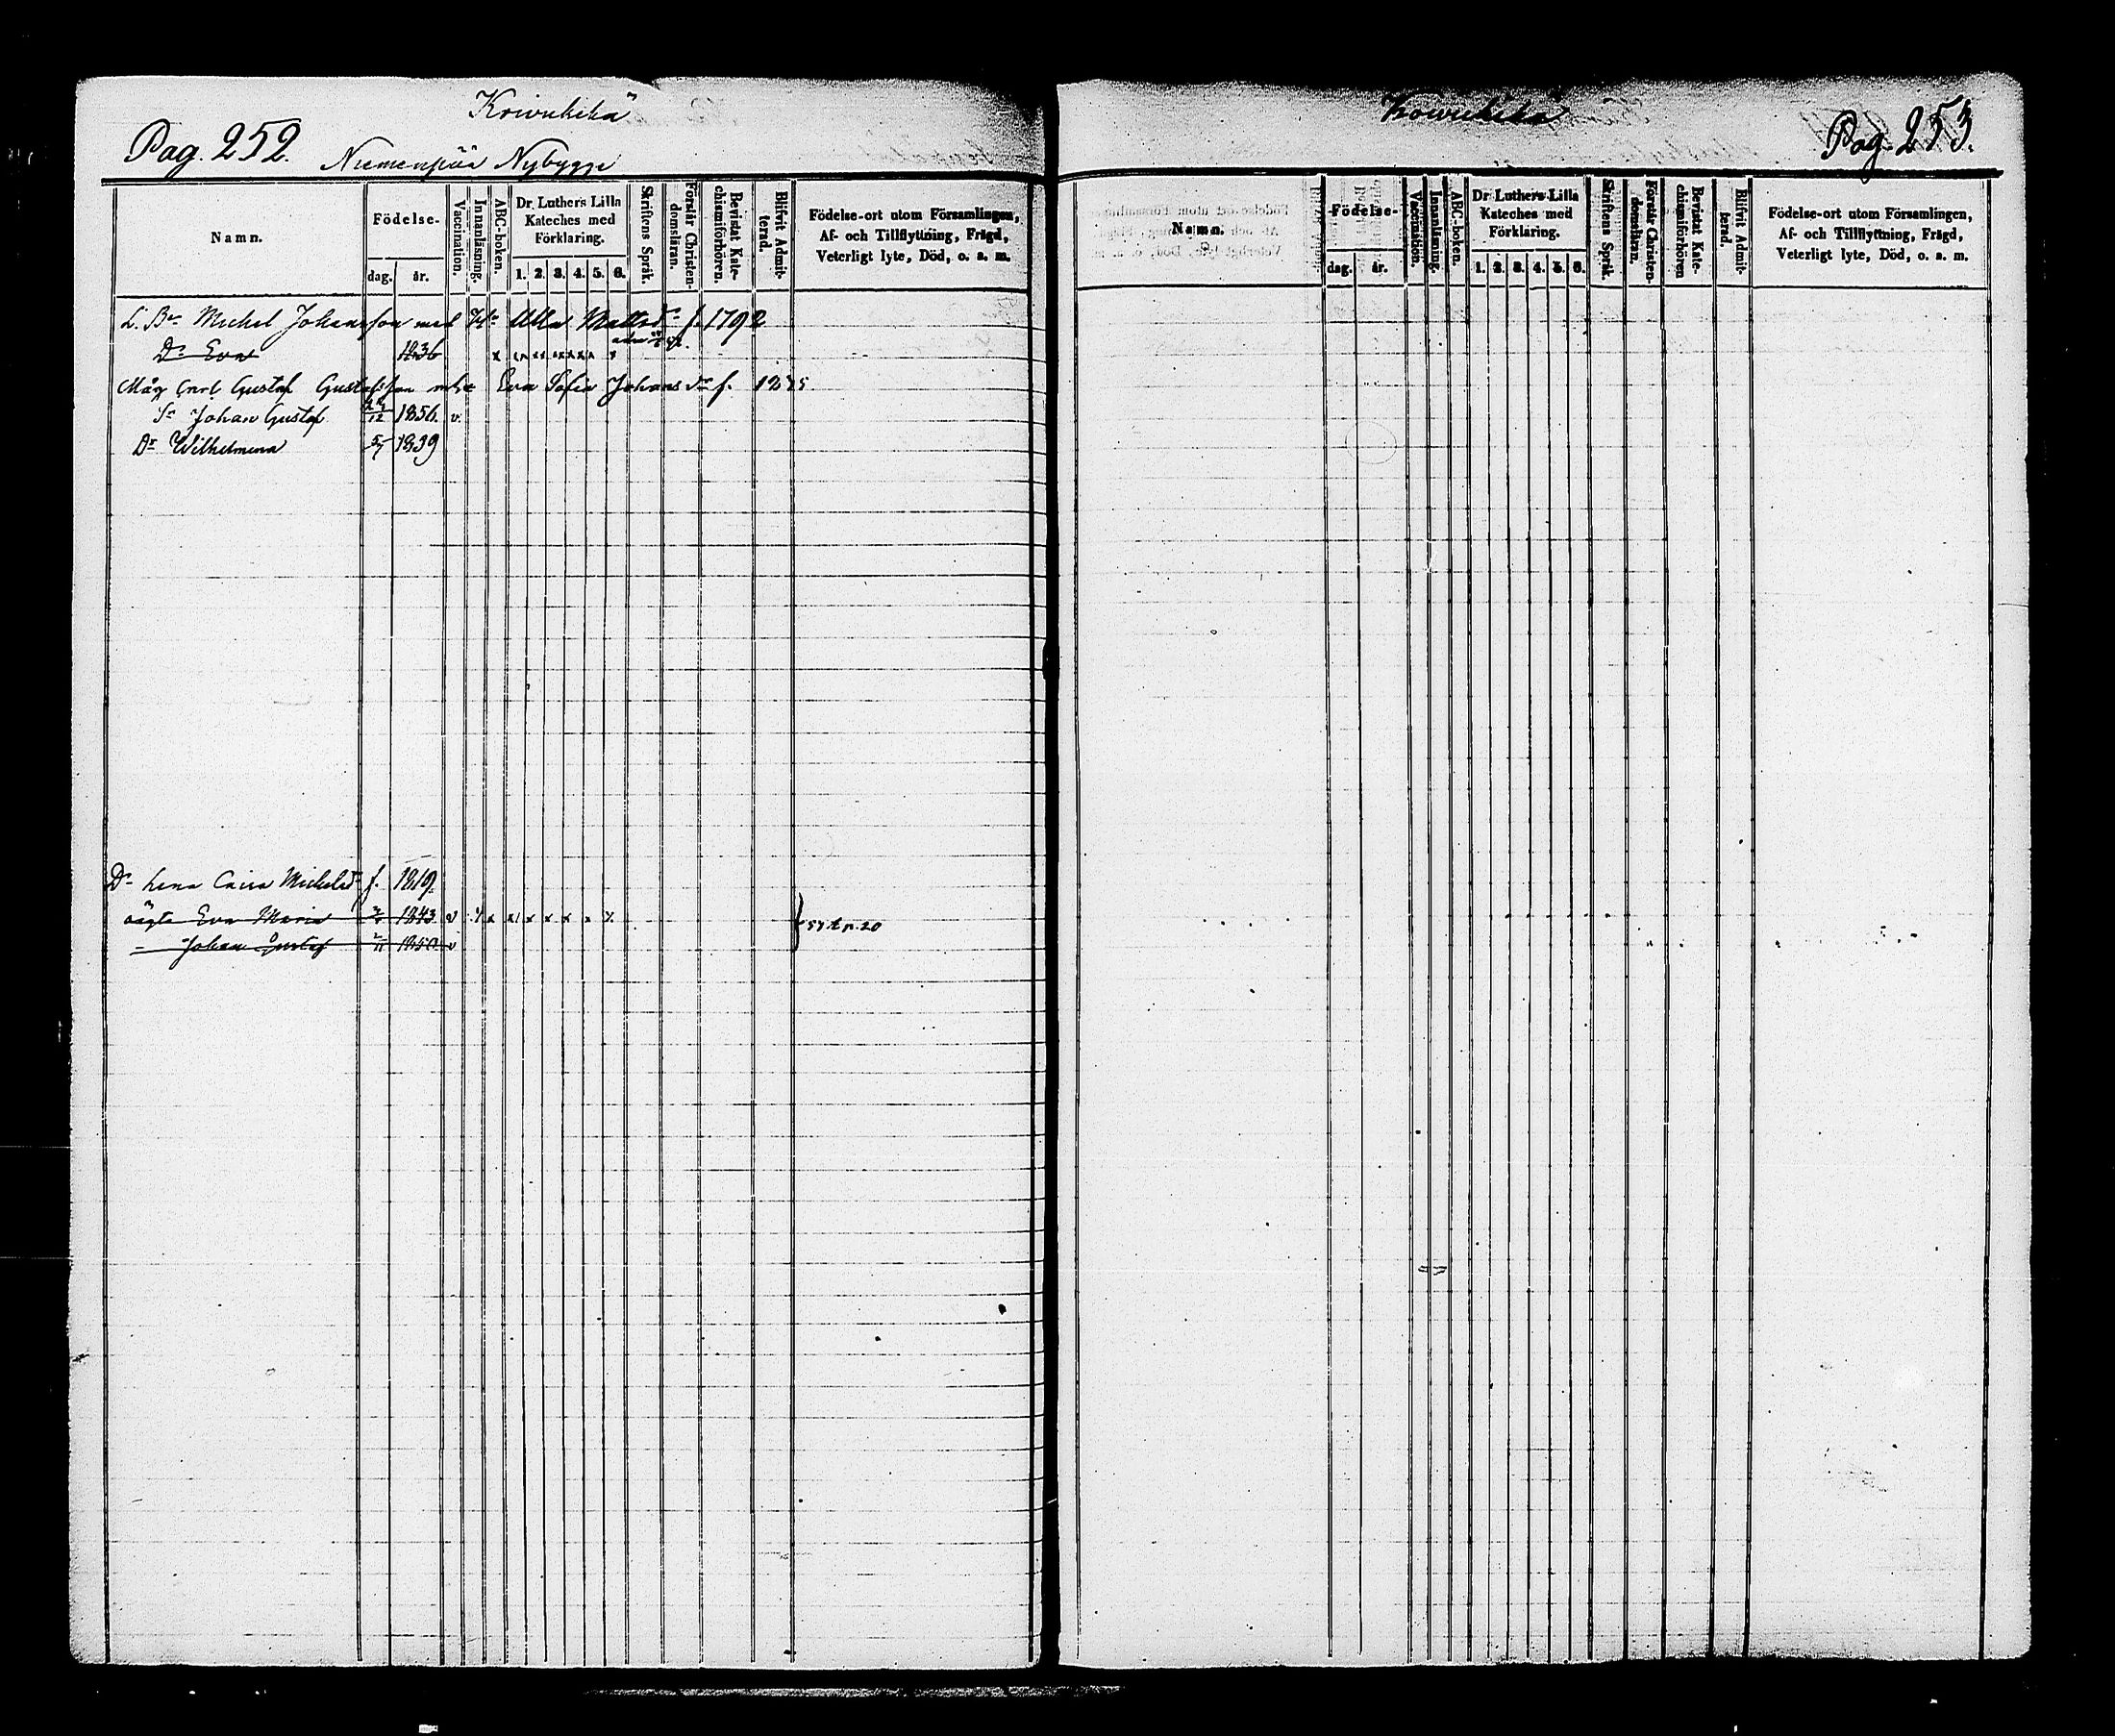 Koivukikä
Pag. 252.
Niemenpää Nybygge
Namn.
Födelse-
dag. år.
Vaccination.
Innanläsning.
ABC-boken.
Dr. Luthers Lilla
Kateches med
Förklaring.
1. 2. 3. 4. 5. 6.
Skriftens Språk.
Förstår Christen-
domsläran.
Bevistat Kate-
chismiförhören.
Blifvit Admit-
terad.
Födelse-ort utom Församlingen,
Af- och Tillflyttning, Frägd,
Veterligt lyte, Död, o. s. m.
L. Br. Michel Johansson med Ulla Mattsdr f. 1792
Dr Eva 1836 x
Måg Carl Gustaf Gustafsson mh Eva Sofia Johansdr f.
Sn Johan Gustaf 1856. v.
Dr Wilhelmina 5/7 1839
Dr Lena Caisa Michelsdr f. 1819.
oägta Eva Maria 1843 v x x x x x
- Johan Gustaf 1850 v
57 t p. 20
Koivukikä
Pag. 253.
Namn.
Födelse-
dag. år.
Vaccination.
Innanläsning.
ABC-boken.
Dr Luthers Lilla
Kateches med
Förklaring.
1. 2. 3. 4. 5. 6.
Skriftens Språk.
Förstår Christen-
domsläran.
Bevistat Kate-
chismiförhören
Blifvit Admit-
terad.
Födelse-ort utom Församlingen,
Af- och Tillflyttning, Frägd,
Veterligt lyte, Död, o. s. m.